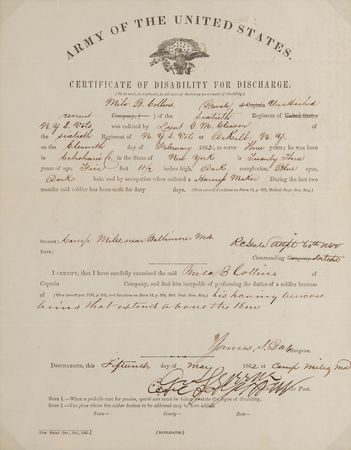 ARMY OF THE UNITED STATES.
CERTIFICATE OF DISABILITY FOR DISCHARGE.
(To be used, in duplicate, in all cases of discharge on account of disability.)
Milo B. Collins (Private) of Captain Unattached
recruit Company, ( ) of the Sixtieth Regiment of United States
N.Y.S. Vols was enlisted by Lieut C. M. of
the Sixtieth Regiment of N.Y.S. Vols at DeKalb N.Y.
on the Eleventh day of February 1862, to serve Three years; he was born
in Schoharie Co in the State of New York is Twenty Three
years of age, Five feet 11 1/2 inches high, Dark complexion, Blue eyes,
Dark hair, and by occupation when enlisted a Harness Maker. During the last two
months said soldier has been unfit for duty days.
STATION: Camp Miles, near Baltimore Md
DATE:
60th
Commanding Company.
I CERTIFY, that I have carefully examined the said Milo B Collins of
Captain Company, and find him incapable of performing the duties of a soldier because
of his having varicose
veins that extend above the knee
Surgeon.
DISCHARGED, this Fifteenth day of May 1862, at Camp Miles Md
the Post.
NOTE 1.—When a probable case for pension, special care must be taken to state the degree of disability.
NOTE 2.—The place where the soldier desires to be addressed may be here added.
Town— County— State—
(DUPLICATES.)